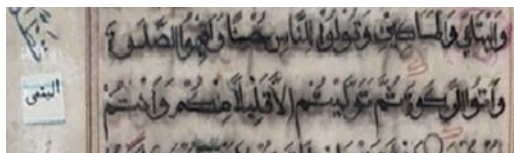 وَاليَتَامَى وَالمَسَاكِينِ وَقُولُوا لِلنَّاسِ حُسْنًا وَأَقِيمُوا الصَّلَوةَ
وَآتُوا الزَّكَوةَ ثُمَّ تَوَلَّيْتُمْ إِلَّا قَلِيلًا مِنْكُمْ وَأَنْتُمْ
اليتمى